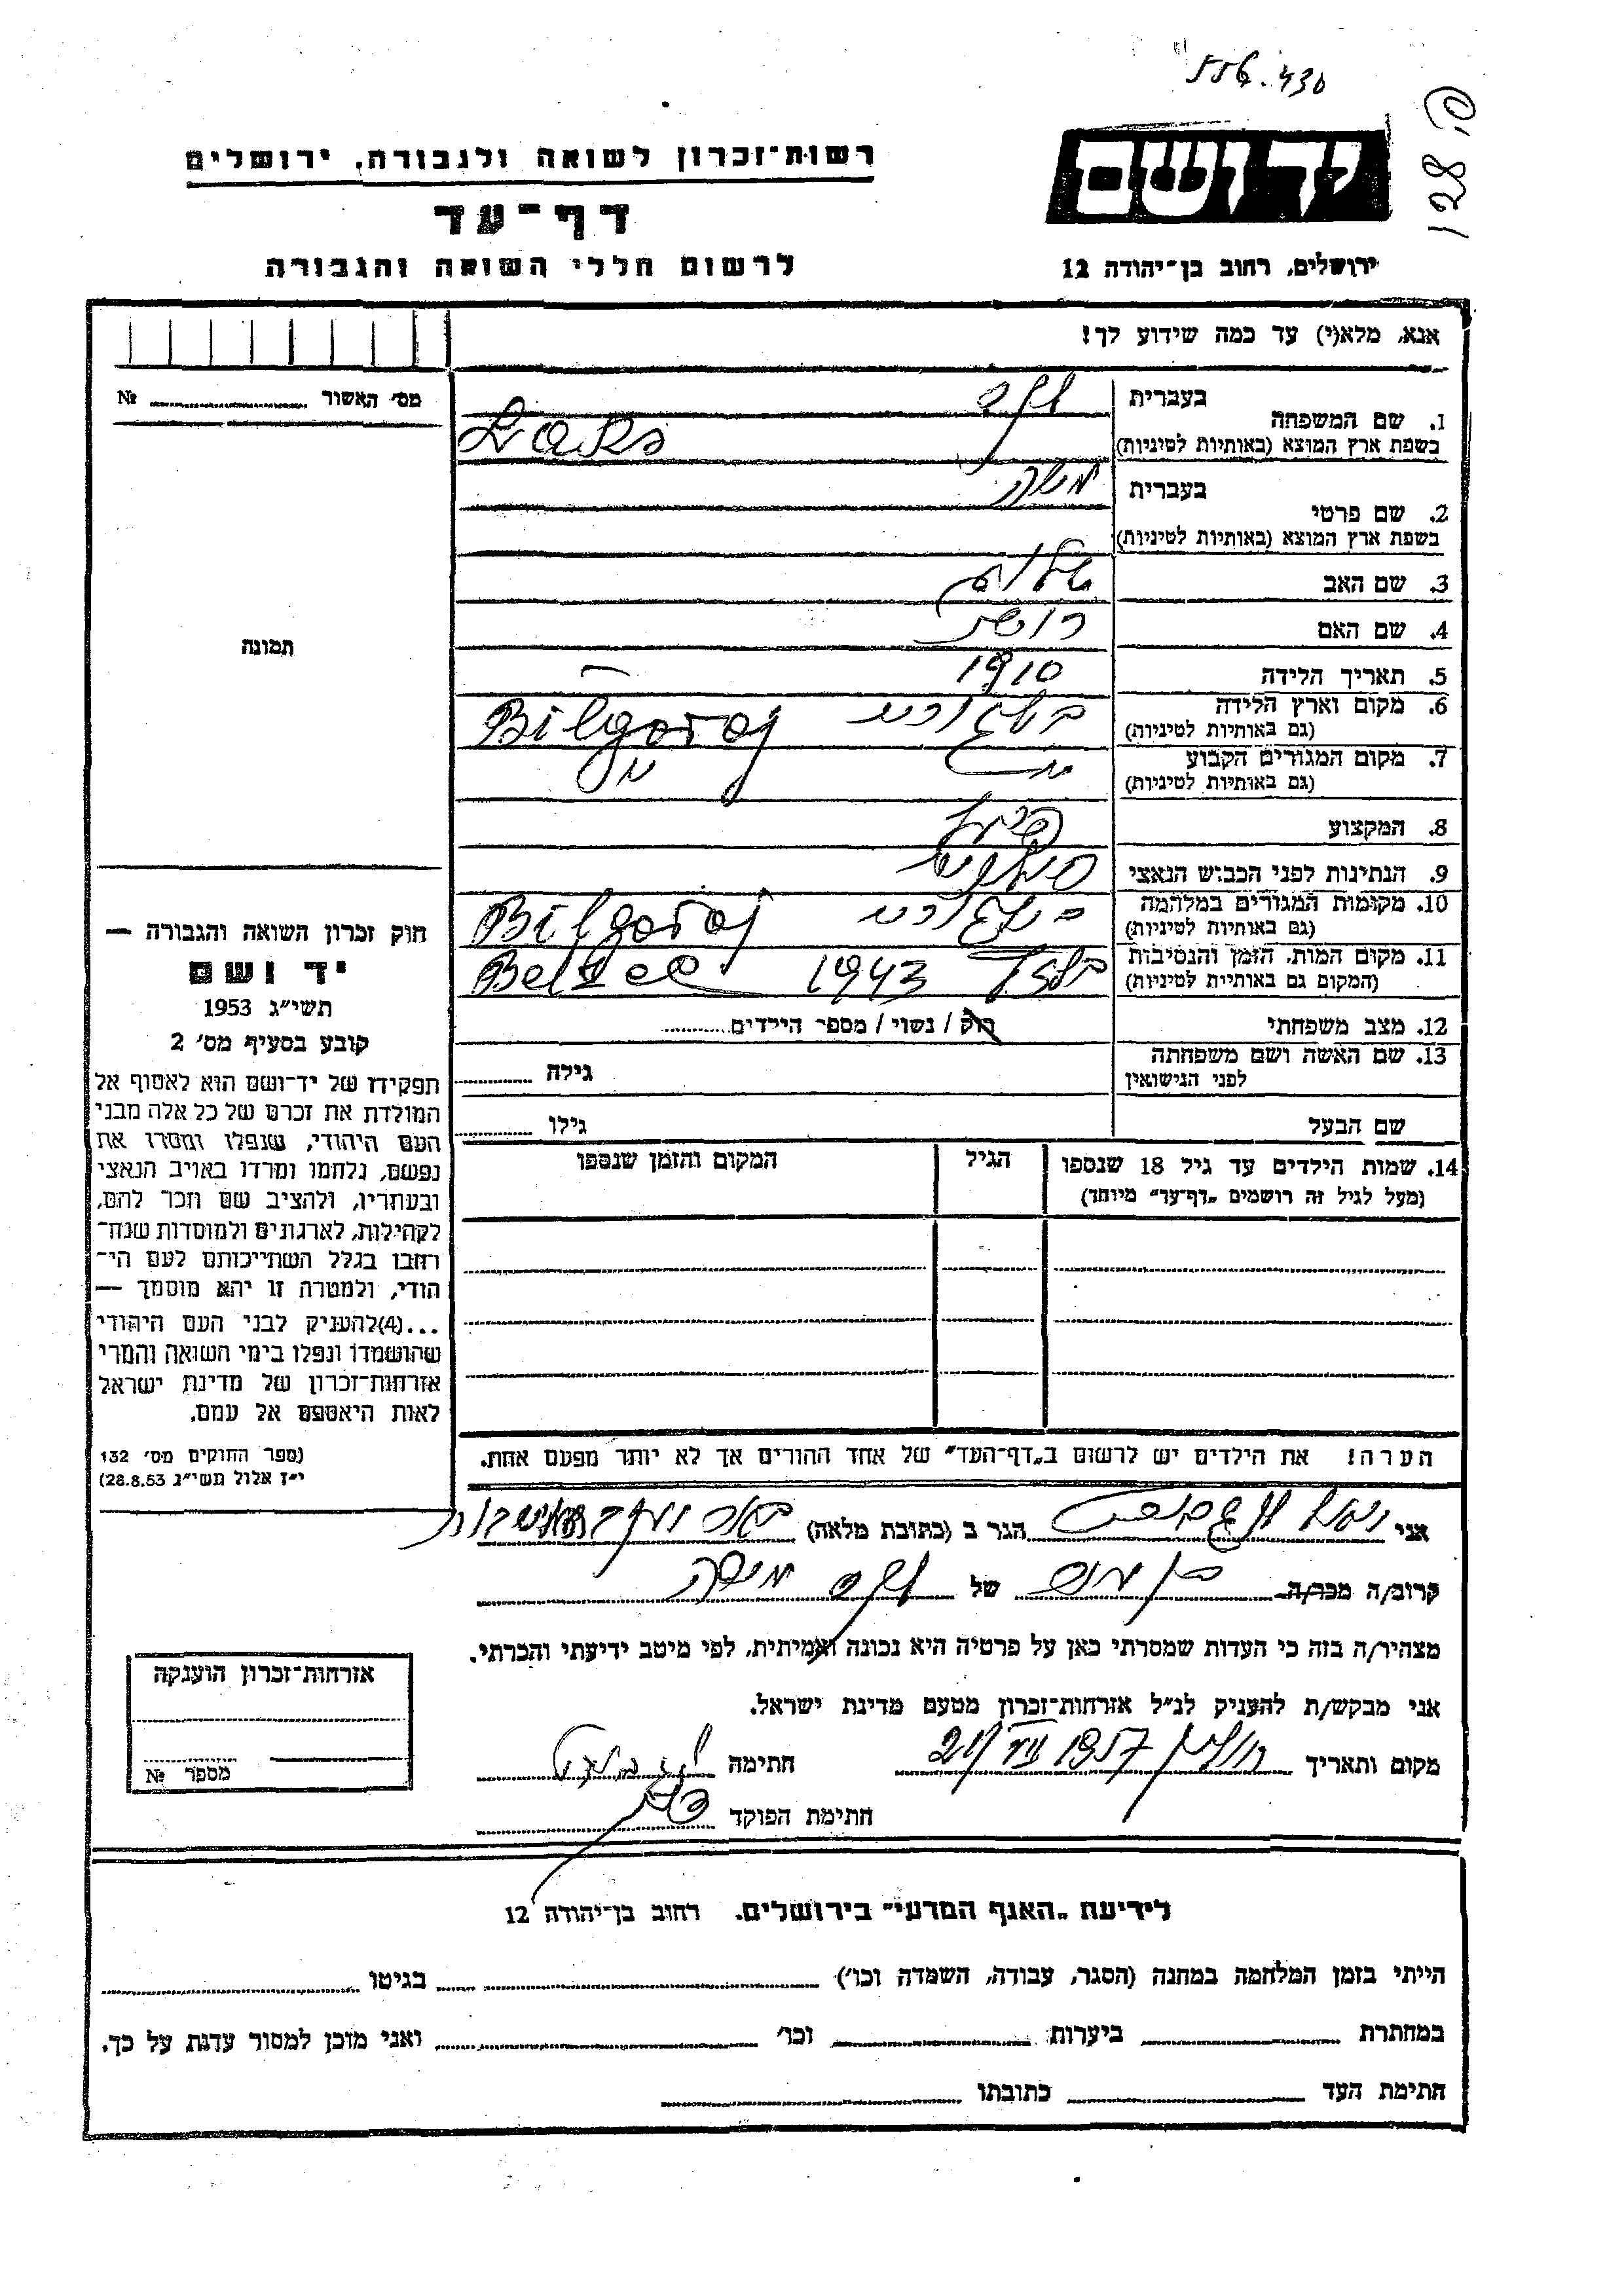 556.430
128 ס.
יד ושם
רשות־זכרון לשואה ולגבורה, ירושלים
דף־עד
לרשום חללי השואה והגבורה
ירושלים, רחוב בן־יהודה 12
אנא, מלא(י) עד כמה שידוע לך!
מס׳ האשור № 
1. שם המשפחה בעברית לקס
בשפת ארץ המוצא (באותיות לטיניות) Laks
2. שם פרטי בעברית משה
בשפת ארץ המוצא (באותיות לטיניות)
3. שם האב שלום
4. שם האם
5. תאריך הלידה 1910
6. מקום וארץ הלידה
(גם באותיות לטיניות) בילגורי Bilgoraj
7. מקום המגורים הקבוע
(גם באותיות לטיניות)
8. המקצוע
9. הנתינות לפני הכבוש הנאצי פולנית
10. מקומות המגורים במלחמה
(גם באותיות לטיניות) בילגורי Bilgoraj
11. מקום המות, הזמן והנסיבות
(המקום גם באותיות לטיניות) בלזץ 1943 Belzec
12. מצב משפחתי רוק / נשוי / מספר הילדים
13. שם האשה ושם משפחתה
לפני הנישואין גילה
שם הבעל גילו
14. שמות הילדים עד גיל 18 שנספו
(מעל לגיל זה רושמים „דף־עד״ מיוחד)
הגיל
המקום והזמן שנספו
הערה! את הילדים יש לרשום ב„דף־העד״ של אחד ההורים אך לא יותר מפעם אחת.
תמונה
חוק זכרון השואה והגבורה —
יד ושם
תשי״ג 1953
קובע בסעיף מס׳ 2
תפקידו של יד־ושם הוא לאסוף אל
המולדת את זכרם של כל אלה מבני
העם היהודי, שנפלו ומסרו את
נפשם, נלחמו ומרדו באויב הנאצי
ובעוזריו, ולהציב שם וזכר להם,
לקהילות, לארגונים ולמוסדות שנח־
רחבו בגלל השתייכותם לעם הי־
הודי, ולמטרה זו יהא מוסמך —
...(4)להעניק לבני העם היהודי
שהושמדו ונפלו בימי השואה והמרי
אזרחות־זכרון של מדינת ישראל
לאות היאספם אל עמם.
(ספר החוקים מס׳ 132
י״ז אלול תשי״ג 28.8.53)
אני הגר ב (כתובת מלאה)
קרוב/ה מכר/ה של לקס משה
מצהיר/ה בזה כי העדות שמסרתי כאן על פרטיה היא נכונה ואמיתית, לפי מיטב ידיעתי והכרתי.
אני מבקש/ת להעניק לנ״ל אזרחות־זכרון מטעם מדינת ישראל.
מקום ותאריך 21/VII 1957 חתימה
חתימת הפוקד
אזרחות־זכרון הוענקה
מספר №
לידיעת „האגף המדעי״ בירושלים. רחוב בן־יהודה 12
הייתי בזמן המלחמה במחנה (הסגר, עבודה, השמדה וכו׳) בגיטו
במחתרת ביערות וכו׳ ואני מוכן למסור עדות על כך.
חתימת העד כתובתו